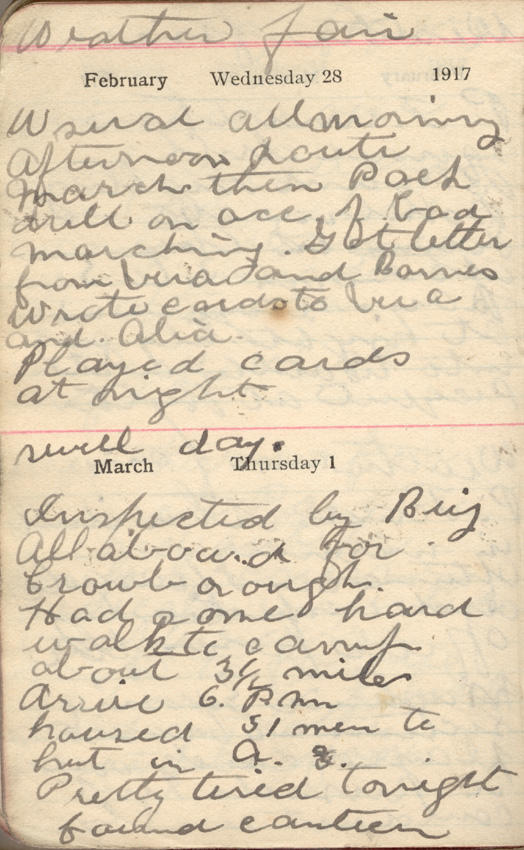 Weather fair
February Wednesday 28 1917
Usual all morning
Afternoon route
march then Pack
drill on acc of bad
marching. Got letter
from Vera and Barnes
Wrote cards to Vera
and
Played cards
at night
swell day.
March Thursday 1
Inspected by Brig
All aboard for
Crowborough.
Had some hard
walk to camp
about 3½ miles
Arrive 6. P mm
housed 31 men to
hut in
Pretty tired tonight
found canteen